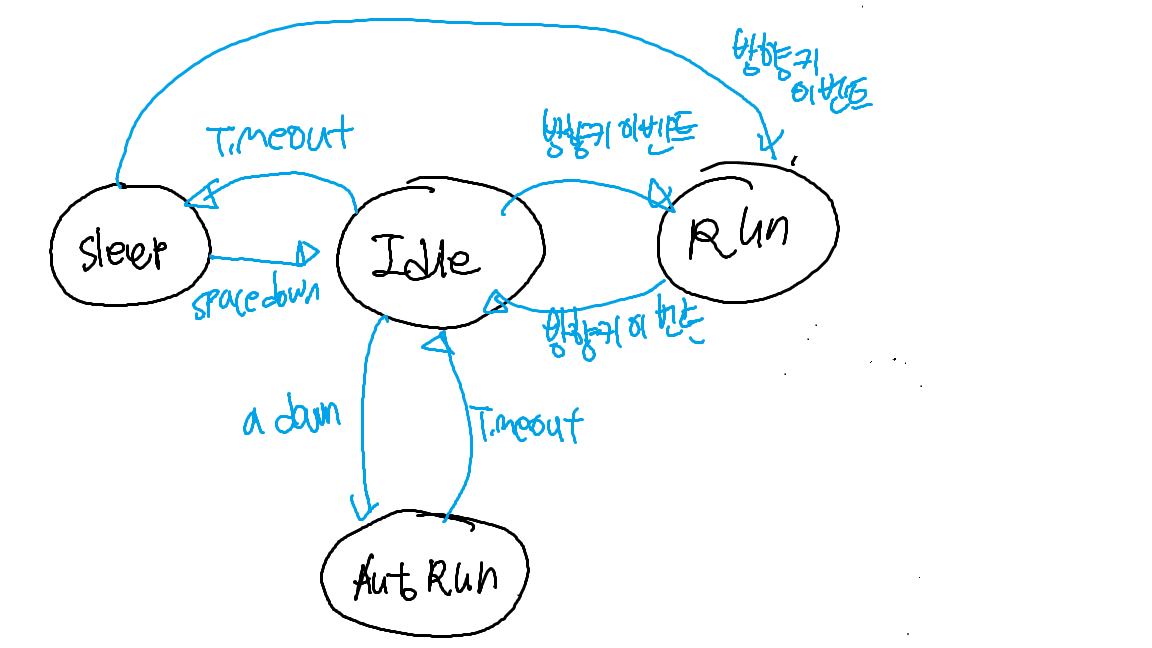 방향키
이벤트
Timeout
방향키 이벤트
Sleep
Idle
Run
space down
방향키 이벤트
a down
Timeout
Aut Run